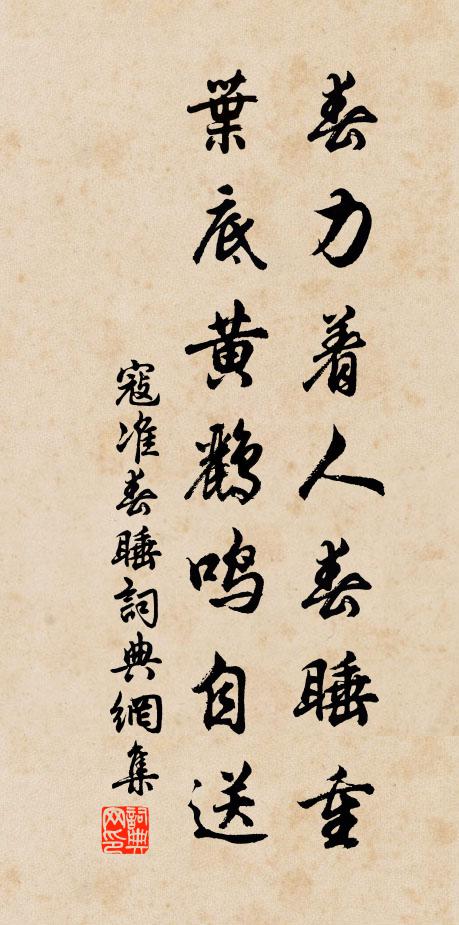 春力着人春睡重
葉底黄鸝鳴自送
寇准春睡詞典網集
詞典网印